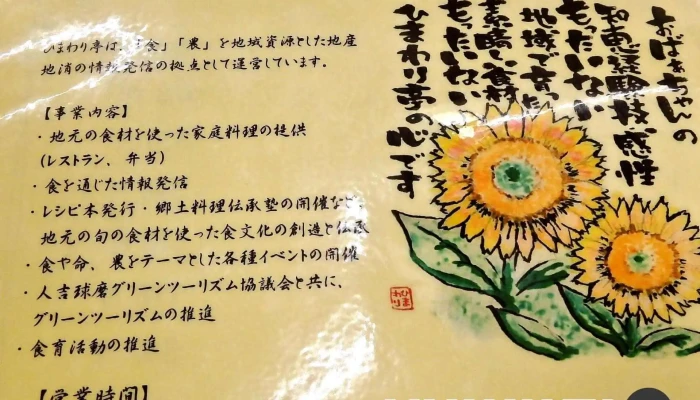 ひまわり亭は、「食」「農」を地域資源とした地産
地消の情報発信の拠点として運営しています。
【事業内容】
・地元の食材を使った家庭料理の提供
(レストラン、弁当)
・食を通じた情報発信
・レシピ本発行・郷土料理伝承塾の開催など、
地元の旬の食材を使った食文化の創造と伝承
・食や命、農をテーマとした各種イベントの開催
・人吉球磨グリーンツーリズム協議会と共に、
グリーンツーリズムの推進
・食育活動の推進
【営業時間】
おばあちゃんの
知恵経験技感性
もったいない
地域で育った
素晴しい食材
もったいない
ひまわり亭の心です
ひまわり